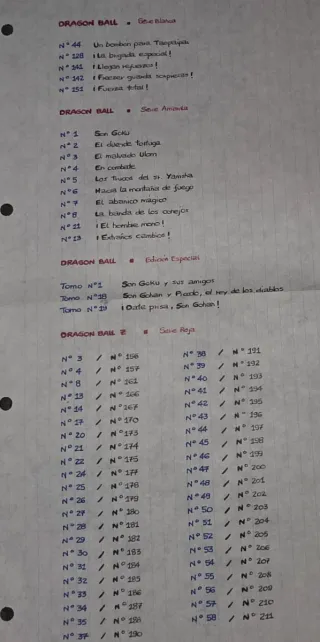 DRAGON BALL • Serie Blanca
Nº 44 Un bombon para Tsupaipai
Nº 128 ¡La brigada especial!
Nº 141 ¡Llegan refuerzos!
Nº 142 ¡Freezer guarda sorpresas!
Nº 151 ¡Fuerza total!
DRAGON BALL • Serie Amarilla
Nº 1 Son Goku
Nº 2 El duende tortuga
Nº 3 El malvado Ulom
Nº 4 En combate
Nº 5 Los trucos del sr. Yamcha
Nº 6 Hacia la montaña de fuego
Nº 7 El abanico mágico
Nº 8 La banda de los conejos
Nº 11 ¡El hombre mono!
Nº 13 ¡Extraños cambios!
DRAGON BALL • Edición Especial
Tomo Nº1 Son Goku y sus amigos
Tomo Nº18 Son Gohan y Piccolo, el rey de los diablos
Tomo Nº19 ¡Date prisa, Son Gohan!
DRAGON BALL Z • Serie Roja
Nº 3 / Nº 156
Nº 4 / Nº 157
Nº 8 / Nº 161
Nº 13 / Nº 166
Nº 14 / Nº 167
Nº 17 / Nº 170
Nº 20 / Nº 173
Nº 21 / Nº 174
Nº 22 / Nº 175
Nº 24 / Nº 177
Nº 25 / Nº 178
Nº 26 / Nº 179
Nº 27 / Nº 180
Nº 28 / Nº 181
Nº 29 / Nº 182
Nº 30 / Nº 183
Nº 31 / Nº 184
Nº 32 / Nº 185
Nº 33 / Nº 186
Nº 34 / Nº 187
Nº 35 / Nº 188
Nº 37 / Nº 190
Nº 38 / Nº 191
Nº 39 / Nº 192
Nº 40 / Nº 193
Nº 41 / Nº 194
Nº 42 / Nº 195
Nº 43 / Nº 196
Nº 44 / Nº 197
Nº 45 / Nº 198
Nº 46 / Nº 199
Nº 47 / Nº 200
Nº 48 / Nº 201
Nº 49 / Nº 202
Nº 50 / Nº 203
Nº 51 / Nº 204
Nº 52 / Nº 205
Nº 53 / Nº 206
Nº 54 / Nº 207
Nº 55 / Nº 208
Nº 56 / Nº 209
Nº 57 / Nº 210
Nº 58 / Nº 211